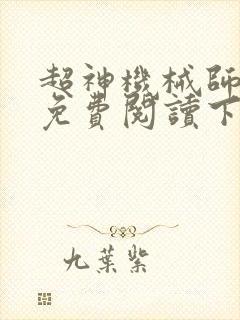 超神機械師
免費閱讀下
九葉紫